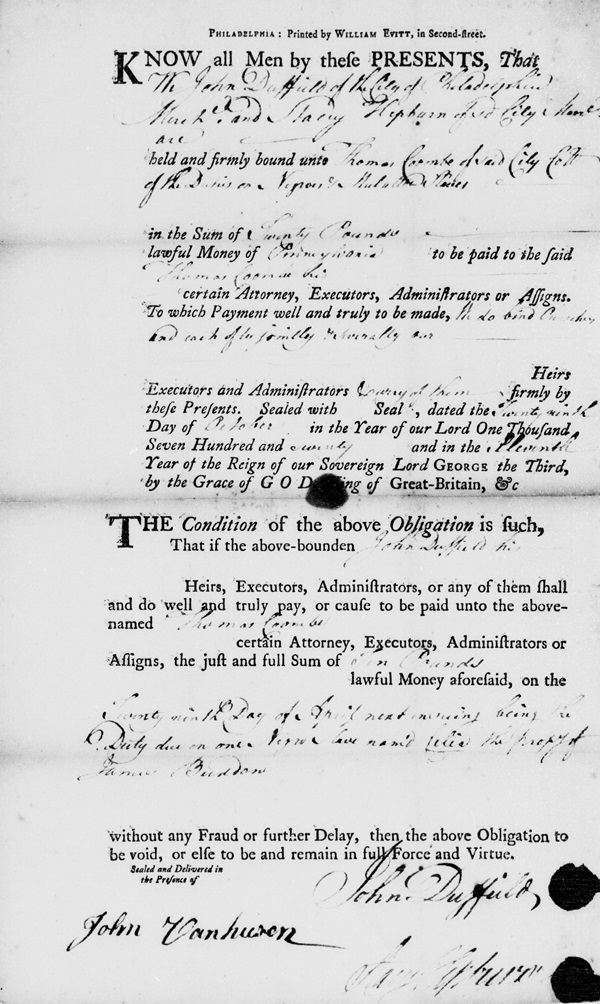 PHILADELPHIA: Printed by WILLIAM EVITT, in Second-ſtreet.
KNOW all Men by theſe PRESENTS, That
We John Duffield of the City of Philadelphia
Merch.t and Stacey Hepburn of s.d City
are
held and firmly bound unto Thomas Coombe of said City
of the Duties on Negroes & Mulattoe Slaves
in the Sum of Twenty Pounds
lawful Money of Pennsylvania to be paid to the ſaid
Thomas Coombe his
certain Attorney, Executors, Adminiſtrators or Aſſigns.
To which Payment well and truly to be made, We do bind Ourselves
and each of us jointly & severally our
Heirs
Executors and Adminiſtrators & every of them firmly by
theſe Preſents. Sealed with Seal, dated the Twenty ninth
Day of October in the Year of our Lord One Thouſand
Seven Hundred and Seventy and in the Eleventh
Year of the Reign of our Sovereign Lord GEORGE the Third,
by the Grace of GOD King of Great-Britain, &c
THE Condition of the above Obligation is ſuch,
That if the above-bounden John Duffield his
Heirs, Executors, Adminiſtrators, or any of them ſhall
and do well and truly pay, or cauſe to be paid unto the above-
named Thomas Coombe
certain Attorney, Executors, Adminiſtrators or
Aſſigns, the juſt and full Sum of Ten Pounds
lawful Money aforeſaid, on the
Twenty ninth Day of April next ensuing being the
Duty due on one Negroe Slave nam'd Celia the prop.y of
James Buddon
without any Fraud or further Delay, then the above Obligation to
be void, or elſe to be and remain in full Force and Virtue.
Sealed and Delivered in
the Preſence of
John Duffield,
John Vanhusen
Stacy Hepburn